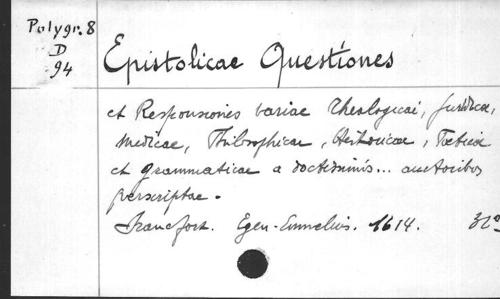 Polygr. 8
D
94
Epistolicae Questiones
et Responsiones variae Theologicai, juridicae,
medicae, Philosophicae, Historicae, Poeticae
et grammaticae a doctissimis... auctoribus
perscriptae.
Francfort. Egen. Emmelius. 1614. 31